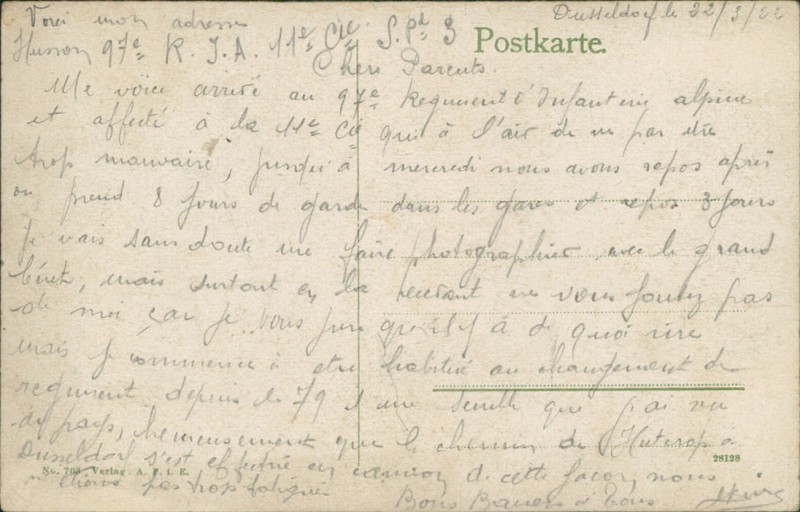 Voici mon adresse
Dusseldorf le 22/3/22
Husson 97e R. I. A. 11e Cie S. Pal 3
Postkarte.
Chers Parents.
Me voici arrivé au 97e Regiment d'Infanterie alpine
et affecté à la 11e Cie qui à l'air de ne pas etre
trop mauvaise, jusqu'à mercredi nous avons repos après
on prend 8 jours de garde dans les gares et repos 3 jours
Je vais sans doute me faire photographier avec le grand
béret, mais surtout en la recevant ne vous foutez pas
de moi car je vous jure qu'il y à de quoi rire
mais je commence à etre habitué au changement de
regiment depuis le 79 il me semble que j'ai vu
du pays, heureusement que le chemin de a
Dusseldorf s'est effectué en camion de cette façon nous
No. 708 Verlag A. F. i. E.
28128
n'étions pas trop fatigués
Bons Baisers à Tous